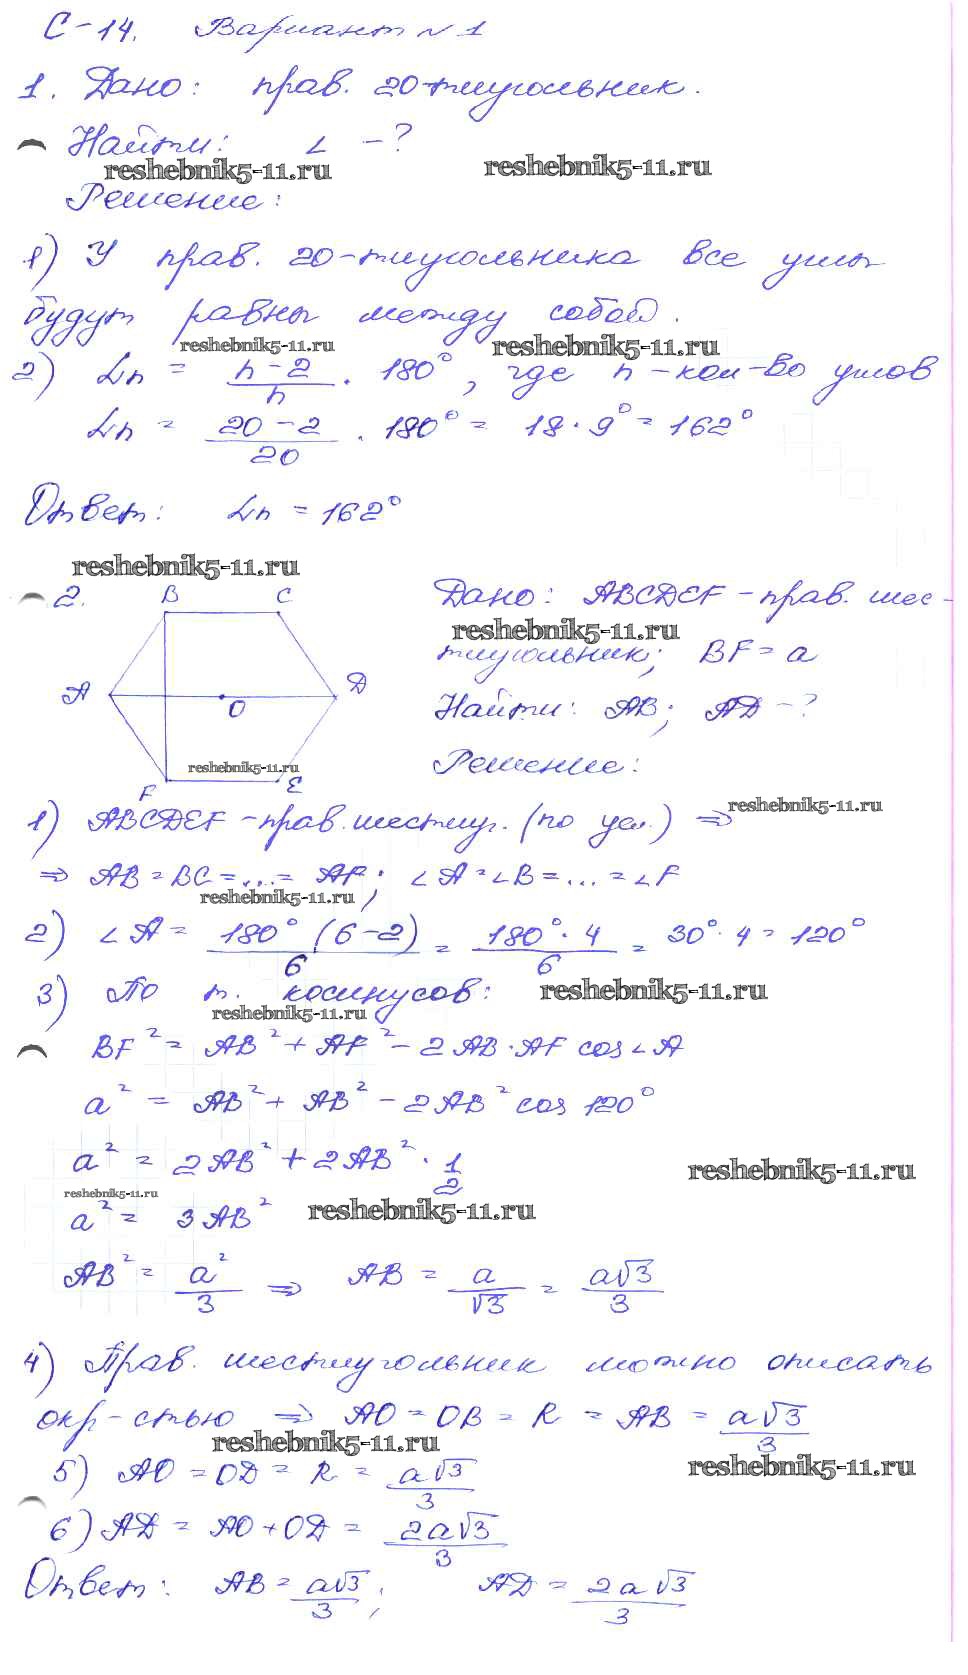 С-14. Вариант №1
1. Дано: прав. 20-тиугольник.
Найти: ∠ -?
reshebnik5-11.ru reshebnik5-11.ru
Решение:
1) У прав. 20-тиугольника все углы
будут равны между собой.
reshebnik5-11.ru reshebnik5-11.ru
2) ∠n = (n-2)/n · 180°, где n - кол-во углов
∠n = (20-2)/20 · 180° = 18·9° = 162°
Ответ: ∠n = 162°
reshebnik5-11.ru
2. B C
A D
O
reshebnik5-11.ru
F E
Дано: ABCDEF - прав. шес-
reshebnik5-11.ru
тиугольник; BF = a
Найти: AB; AD -?
Решение:
reshebnik5-11.ru
1) ABCDEF - прав. шестиуг. (по усл.) ⇒
⇒ AB = BC = ... = AF; ∠A = ∠B = ... = ∠F
reshebnik5-11.ru
2) ∠A = 180°(6-2)/6 = 180°·4/6 = 30°·4 = 120°
3) По т. косинусов: reshebnik5-11.ru
reshebnik5-11.ru
BF² = AB² + AF² - 2AB·AF cos∠A
a² = AB² + AB² - 2AB² cos 120°
a² = 2AB² + 2AB² · 1/2
reshebnik5-11.ru
reshebnik5-11.ru
a² = 3AB² reshebnik5-11.ru
AB² = a²/3 ⇒ AB = a/√3 = a√3/3
4) Прав. шестиугольник можно описать
окр-стью ⇒ AO = OB = R = AB = a√3/3
reshebnik5-11.ru
reshebnik5-11.ru
5) AO = OD = R = a√3/3
6) AD = AO + OD = 2a√3/3
Ответ: AB = a√3/3; AD = 2a√3/3